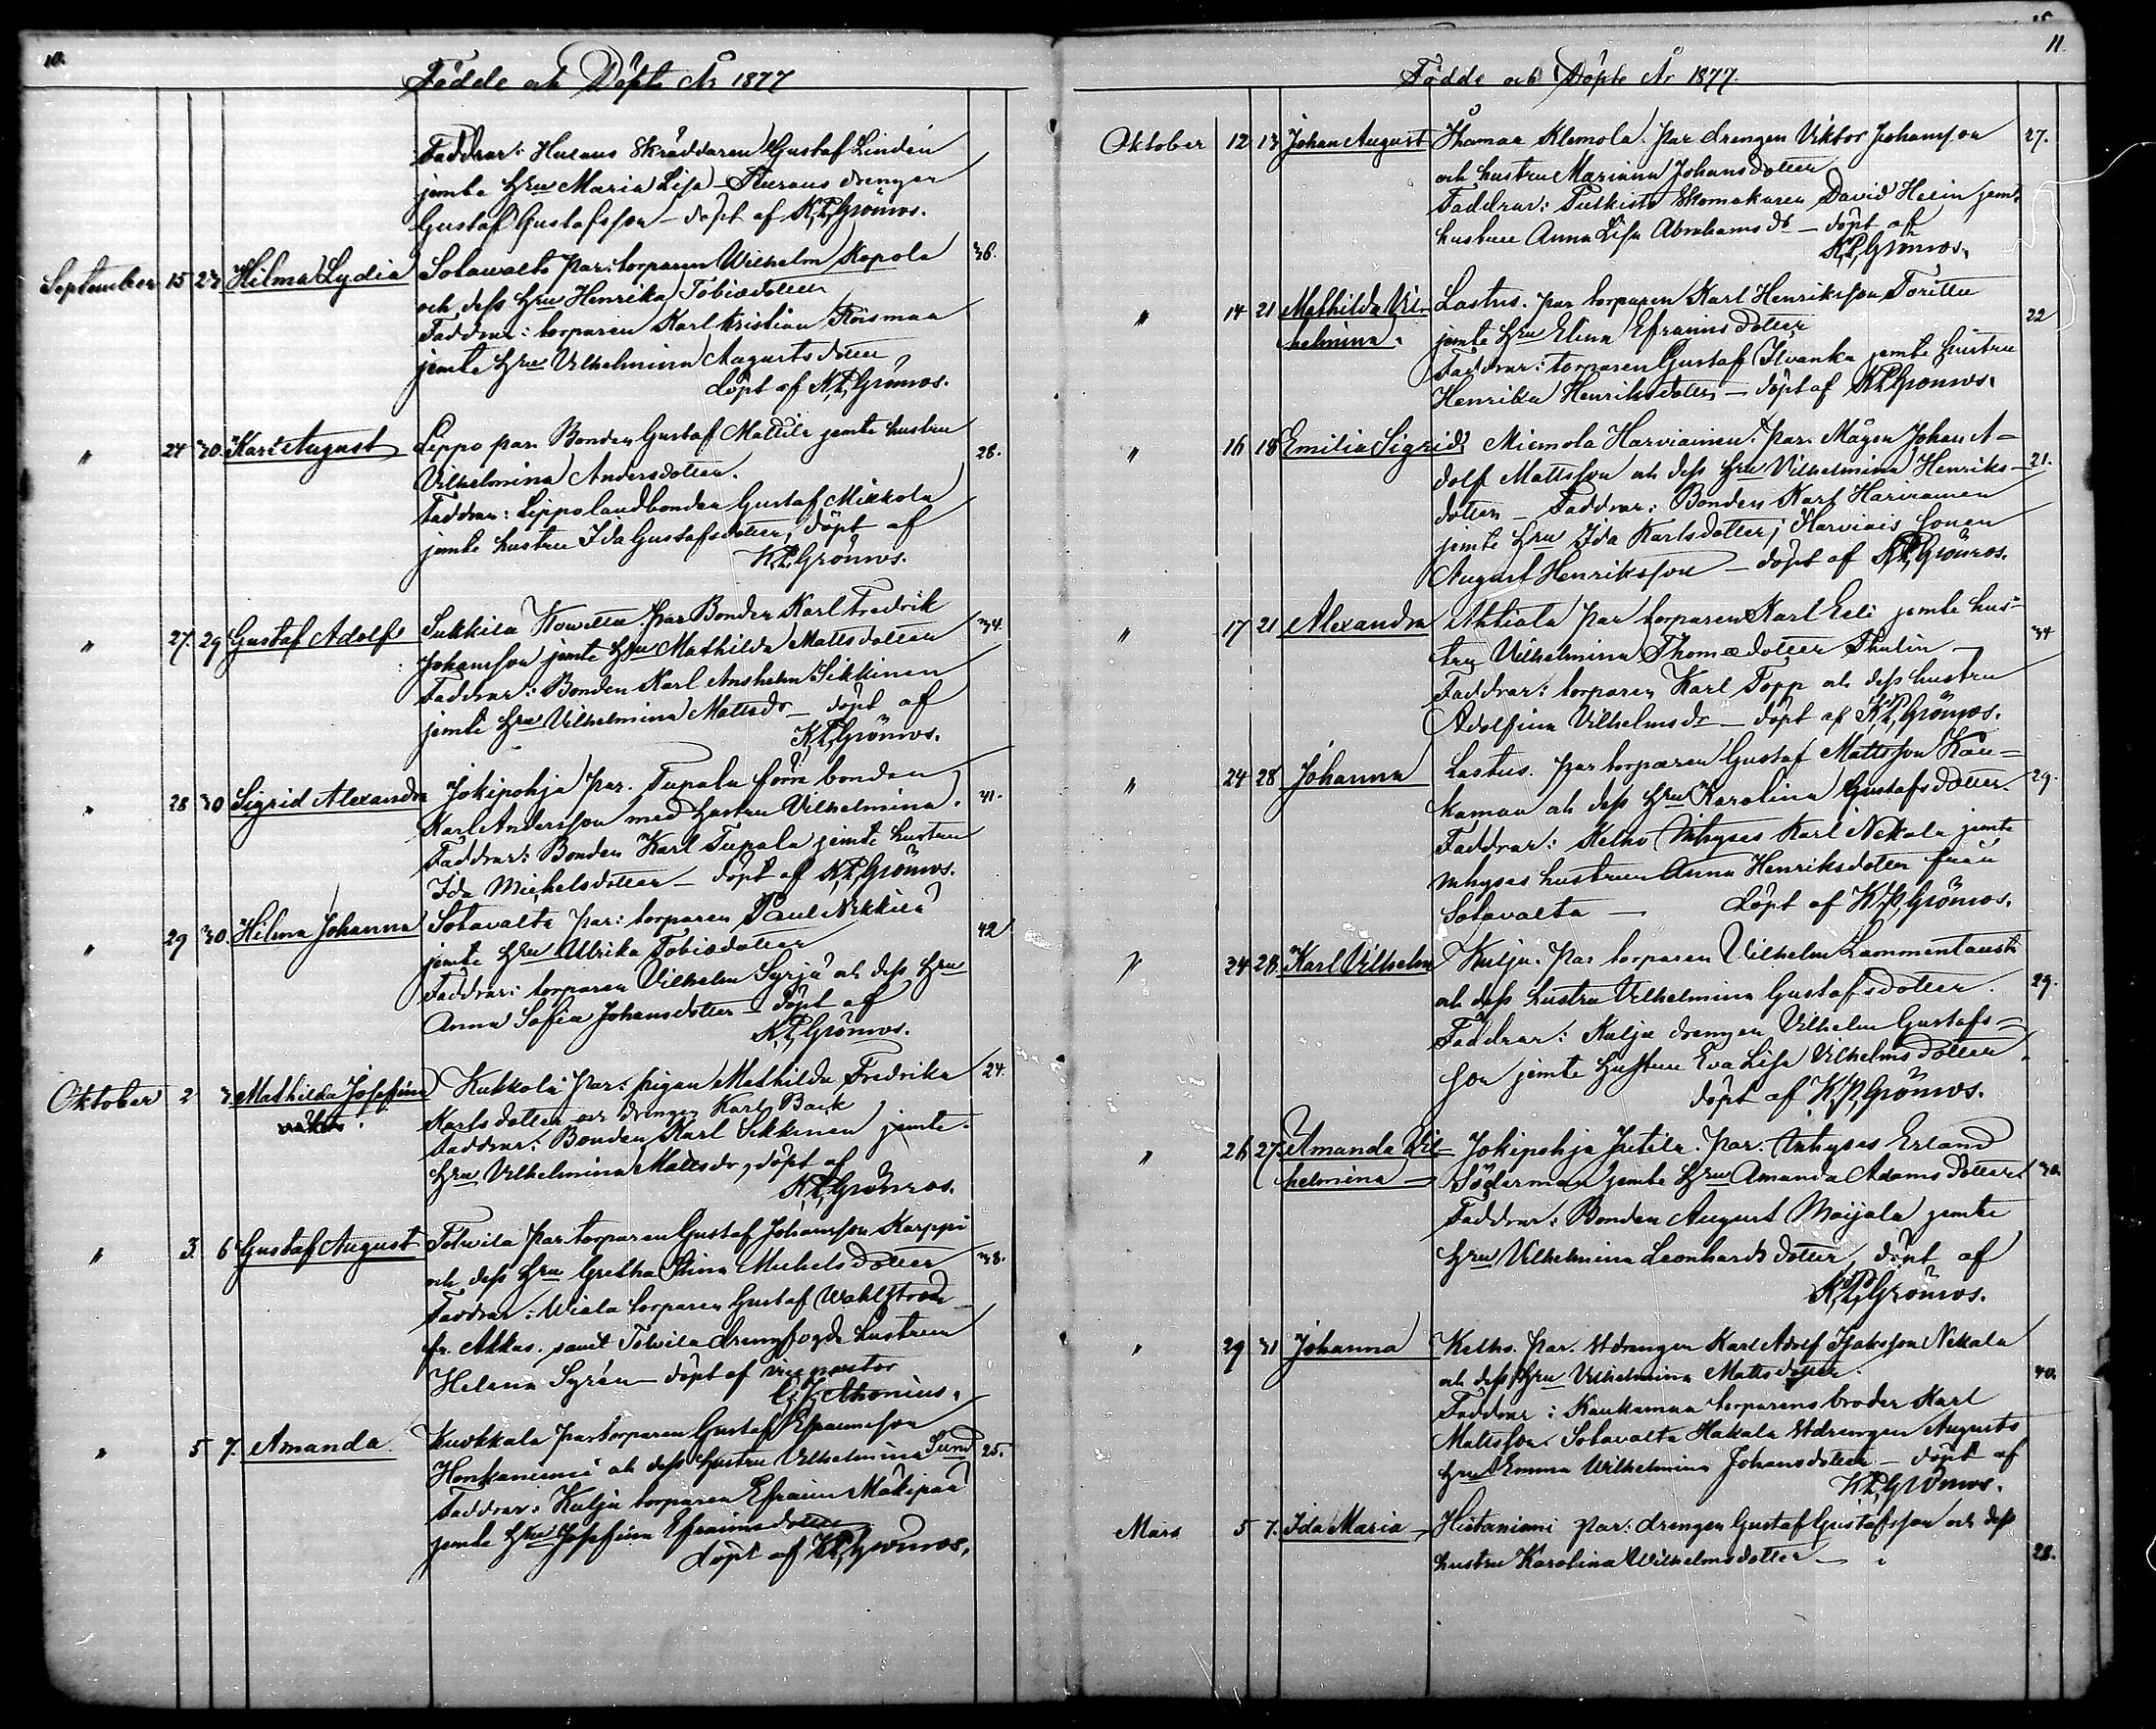 10.
Födde och Döpte År 1877
Faddrar: Huraus Skräddaren Gustaf Lindén
jemte Hru Maria Lisa – Huraus drengen
Gustaf Gustafsson – döpt af K,P,Grönros.
September 15 23 Hilma Lydia Sotavalta Par: torparen Wilhelm Kopola 36.
och dess Hru Henrika Tobiædotter
Faddrar: torparen Karl Kristian
jemte Hru Vilhelmina Augustsdotter
döpt af K,P,Grönros.
" 24 30. Karl August Lippo par. Bonden Gustaf Mattila jemte hustru 28.
Vilhelmina Andersdotter.
Faddrar: Lippo landbonden Gustaf Mikkola
jemte hustru Ida Gustafsdotter, döpt af
K,P,Grönros.
" 27. 29 Gustaf Adolf Sukkila par Bonden Karl Fredrik 34.
Johansson jemte Hru Mathilda Mattsdotter
Faddrar: Bonden Karl Anshelm Sikkinen
jemte Hru Vilhelmina Mattsdr – döpt af
K,P,Grönros.
" 28 30 Sigrid Alexandra Jokipohja par. Tupala förra bonden 31.
Karl Andersson med hustru Vilhelmina.
Faddrar: Bonden Karl Tupala jemte hustru
Ida Michelsdotter – döpt af K,P,Grönros.
" 29 30. Hilma Johanna Sotavalta Par: torparen Paul Nikkilä 42
jemte Hru Ullrika Tobiædotter
Faddrar: torparen Vilhelm Syrjä och dess Hru
Anna Sofia Johansdotter – döpt af
K,P,Grönros.
Oktober 2 3. Mathilda Josefina Kukkola Par: pigan Mathilda Fredrika 24.
Karlsdotter och drengen Karl Back
Faddrar: Bonden Karl Sikkinen jemte
Hru Vilhelmina Mattsdr, döpt af
K,P,Grönros.
" 3. 6 Gustaf August Tolvila par torparen Gustaf Johansson Karppi 38.
och dess Hru Gretha Stina Michelsdotter
Faddrar: Viala torparen Gustaf Wahlström
fr. Akkas. samt Tolvila drengfogde hustrun
Helena Syrén – döpt af vice pastor
Ahonius.
" 5 7. Amanda. Kuokkala par torparen Gustaf Efraimsson 25.
Honkaniemi och dess hustru Vilhelmina Sund
Faddrar: Kulju torparen Efraim Mäkipää
jemte Hru Josefina Efraimsdotter
döpt af K,P,Grönros.
11
Födde och Döpte År 1877.
Oktober 12 13 Johan August Klemola. Par drengen Viktor Johansson 27.
och hustru Marianna Johansdotter
Faddrar: Putkisto Skomakaren David Helin jemte
hustru Anna Lisa Abrahamsdr – döpt af
K,P,Grönros.
" 14 21 Mathilda Vil- Lastus. par torparen Karl Henriksson Torittu 22
helmina. jemte Hru Elina Efraimsdotter
Faddrar: torparen Gustaf Ilvanka jemte hustru
Henrika Henriksdotter – döpt af K,P,Grönros.
" 16 18 Emilia Sigrid Miemola Harviainen. Par. Mågen Johan A-
dolf Mattsson och dess Hru Vilhelmina Henriks- 21.
dotter – Faddrar: Bonden Karl Harviainen
jemte Hru Ida Karlsdotter; Harviais sonen
August Henriksson – döpt af K,P,Grönros.
" 17 21 Alexandra Ahtiala par torparen Karl Eeli jemte hus- 34
tru Vilhelmina Thomædotter Thulin –
Faddrar: torparen Karl Topp och dess hustru
Adolfina Vilhelmsdr – döpt af K,P,Grönros.
" 24 28 Johanna Lastus. par torparen Gustaf Mattsson Kau- 29.
kamaa och dess Hru Karolina Gustafsdotter.
Faddrar: Kelho Inhyses Karl Nekala jemte
Inhyses hustrun Anna Henriksdotter från
Sotavalta – döpt af K,P,Grönros.
" 24 28. Karl Vilhelm Kulju. Par torparen Vilhelm Lammentausta 29.
och dess hustru Vilhelmina Gustafsdotter.
Faddrar: Kulju drengen Vilhelm Gustafs-
son jemte hustru Eva Lisa Vilhelmsdotter
döpt af K,P,Grönros.
" 26 27. Amanda Vil- Jokipohja Jutila. Par. Inhyses Erland
helmina – Söderman jemte Hru Amanda Adamsdotter. 30.
Faddrar: Bonden August Maijala jemte
Hru Vilhelmina Leonhardsdotter, döpt af
K,P,Grönros.
" 29 31 Johanna Kelho. Par. Stdrengen Karl Adolf Isaksson Nekala 40.
och dess Hru Vilhelmina Mattsdotter.
Faddrar: Kaukamaa torparens broder Karl
Mattsson. Sotavalta Hakala Stdrengen Augusts
Hru Emma Wilhelmina Johansdotter – döpt af
K,P,Grönros.
Mars 5 7. Ida Maria – Hietaniemi par: drengen Gustaf Gustafsson och dess 28.
hustru Karolina Wilhelmsdotter –